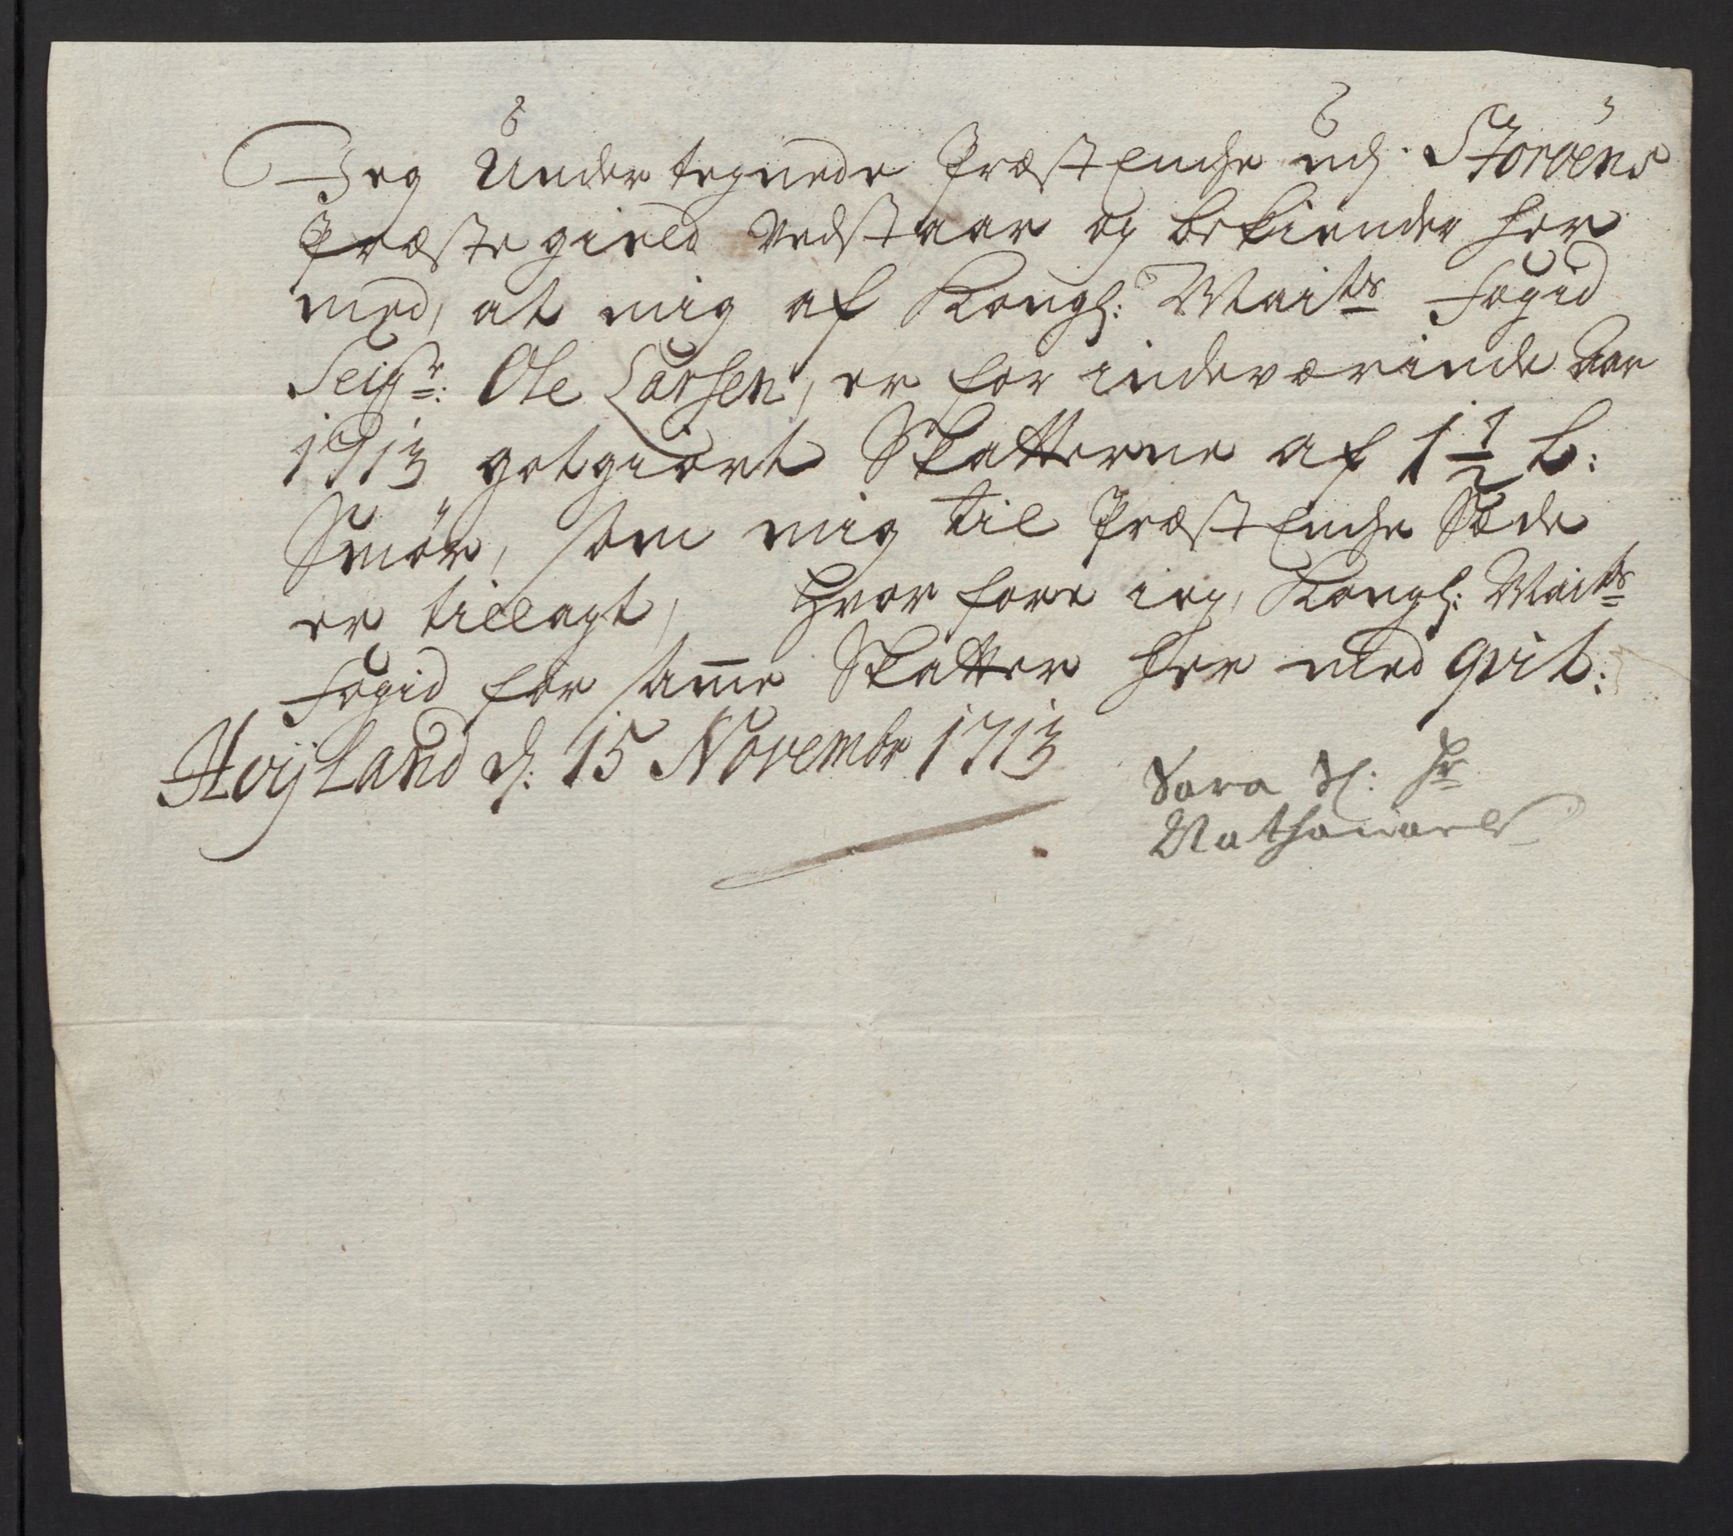 Jeg Undertegnede Præst Enche udj Storøens
Præstegield Vedstaar og bekiender her
med, at mig af Kongl: Maits Fogid
Seigr: Ole Larsen, er for indeværinde Aar
1713 gotgiort Skatterne af 1 1/2 L:
Smør, som mig til Præst Enche Sæde
er tillagt, Hvor fore ieg, Kongl: Maits
Fogid for same Skatter her med qvit:
Høyland d: 15 Novembr 1713
Sara Sl: Hr
Nathanaels